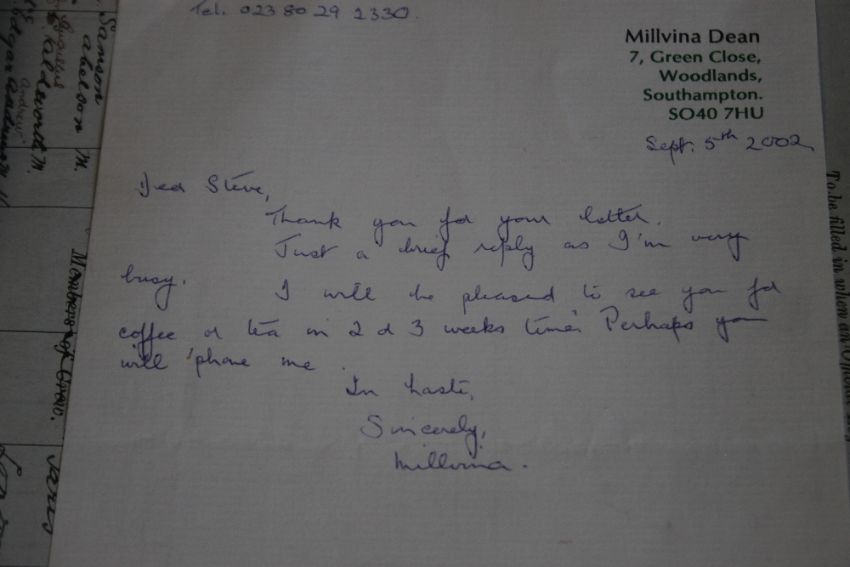 Tel. 023 80 29 2330.
Millvina Dean
7, Green Close,
Woodlands,
Southampton.
SO40 7HU
Sept. 5th 2002
Dear Steve,
Thank you for your letter.
Just a brief reply as I'm very
busy.
I will be pleased to see you for
coffee or tea in 2 or 3 weeks time. Perhaps you
will 'phone me.
In haste,
Sincerely,
Millvina.
Samson
abelson M.
Members of Crew.
To be filled in when an Official